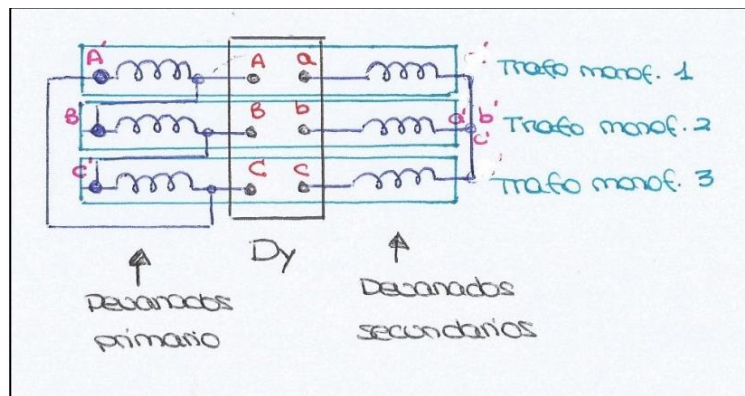 A' A a Trafo monof. 1
B B b a' b' c' Trafo monof. 2
c' C c Trafo monof. 3
Dy
Devanados primario
Devanados secundarios